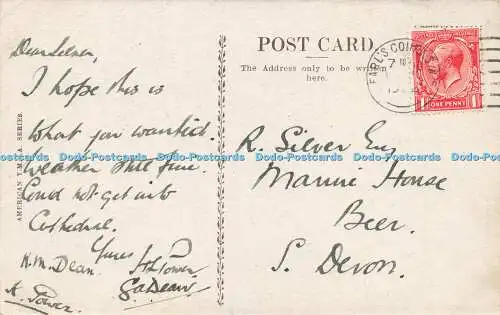 Dear Silver,
I hope this is
what you wanted.
Weather still fine.
Could not get into
Cathedral.
Yours
H.M. Dean.
G.A. Dean
A. Power.
AMERICAN Y.M.C.A. SERIES.
POST CARD.
The Address only to be written
here.
EARL'S COURT
7
ONE PENNY
R. Silver Esq
Marine House
Beer
S. Devon.
Dodo-Postcards Dodo-Postcards Dodo-Postcards Dodo-Postcards Dodo-Postcards